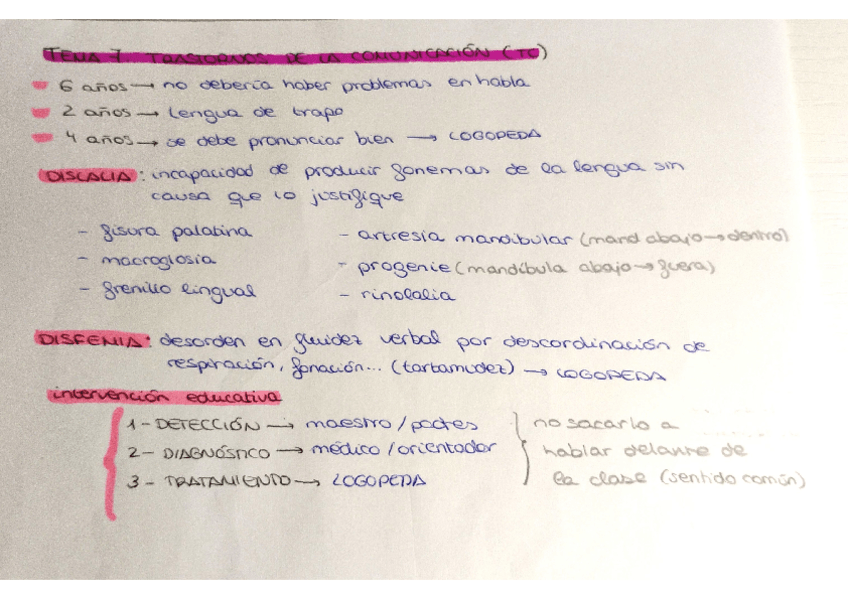 TEMA 7. TRASTORNOS DE LA COMUNICACIÓN (TC)
6 años → no debería haber problemas en habla
2 años → Lengua de trapo
4 años → se debe pronunciar bien → LOGOPEDA
DISLALIA: incapacidad de producir fonemas de la lengua sin
causa que lo justifique
- fisura palatina
- macroglosia
- frenillo lingual
- artresia mandibular (mand abajo → dentro)
- progenie (mandíbula abajo → fuera)
- rinolalia
DISFEMIA: desorden en fluidez verbal por descordinación de
respiración, fonación... (tartamudez) → LOGOPEDA
intervención educativa
1- DETECCIÓN → maestro / padres
2- DIAGNÓSTICO → médico / orientador
3- TRATAMIENTO → LOGOPEDA
no sacarlo a
hablar delante de
la clase (sentido común)